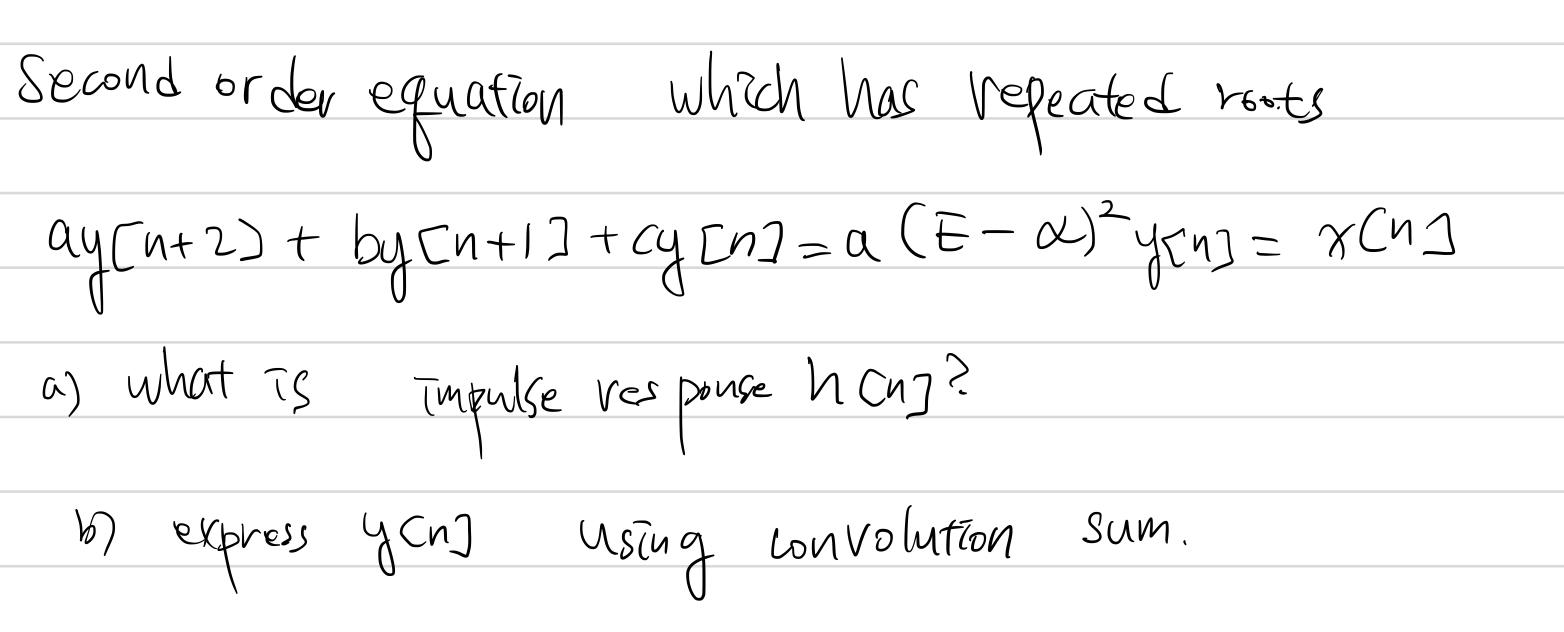 Second order equation which has repeated roots
ay[n+2] + by[n+1] + cy[n] = a(E-α)²y[n] = x[n]
a) what is impulse response h[n]?
b) express y[n] using convolution sum.